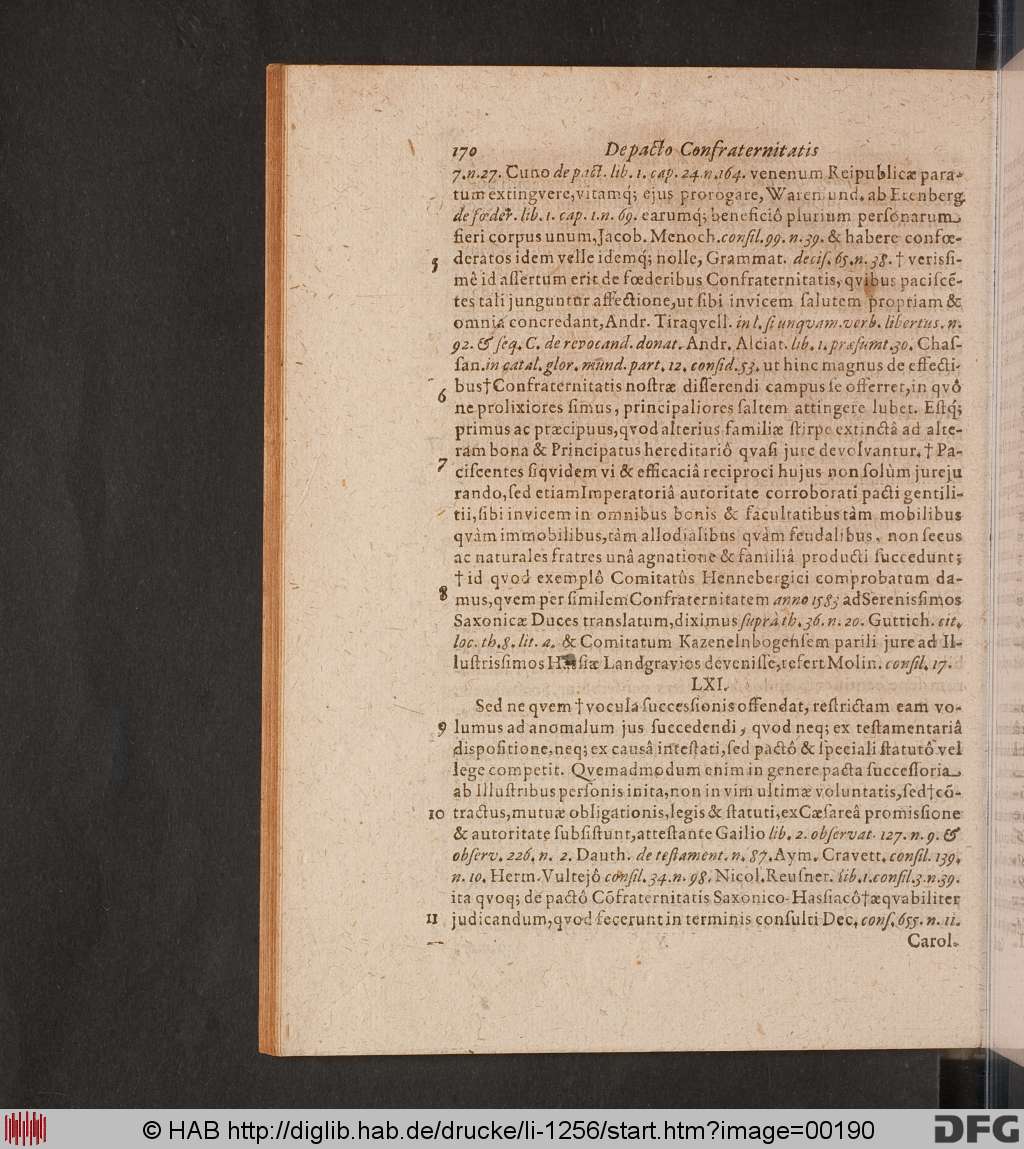 170 De pacto Confraternitatis
7. n. 27. Cuno de pact. lib. 1. cap. 24. n. 164. venenum Reipublicæ para-
tum extingvere, vitamq́; ejus prorogare, Waremund. ab Erenberg.
de fœder. lib. 1. cap. 1. n. 69. earumq́; beneficiô plurium perſonarum
fieri corpus unum, Jacob. Menoch. conſil. 99. n. 39. & habere confœ-
5 deratos idem velle idemq́; nolle, Grammat. deciſ. 65. n. 38. † verisſi-
mê id aſſertum erit de fœderibus Confraternitatis, qvibus paciſcẽ-
tes tali junguntur affectione, ut ſibi invicem ſalutem propriam &
omnia concredant, Andr. Tiraqvell. in l. ſi unqvam. verb. libertus. n.
92. & ſeq. C. de revocand. donat. Andr. Alciat. lib. 1. præſumt. 30. Chaſ-
ſan. in catal. glor. mund. part. 12. conſid. 53. ut hinc magnus de effecti-
6 bus † Confraternitatis noſtræ diſſerendi campus ſe offerret, in qvô
ne prolixiores ſimus, principaliores ſaltem attingere lubet. Eſtq́;
primus ac præcipuus, qvod alterius familiæ ſtirpe extinctâ ad alte-
ram bona & Principatus hereditariô qvaſi jure devolvantur. † Pa-
7 ciſcentes ſiqvidem vi & efficaciâ reciproci hujus non ſolùm jureju
rando, ſed etiam Imperatoriâ autoritate corroborati pacti gentili-
tii, ſibi invicem in omnibus bonis & facultatibus tàm mobilibus
qvàm immobilibus, tàm allodialibus qvàm feudalibus, non ſecus
ac naturales fratres unâ agnatione & familiâ producti ſuccedunt;
† id qvod exemplô Comitatûs Hennebergici comprobatum da-
8 mus, qvem per ſimilem Confraternitatem anno 1583 ad Serenisſimos
Saxonicæ Duces translatum, diximus ſuprà th. 36. n. 20. Guttich. cit.
loc. th. 8. lit. a. & Comitatum Kazenelnbogenſem parili jure ad Il-
luſtrisſimos Hasſiæ Landgravios deveniſſe, refert Molin. conſil. 17.
LXI.
Sed ne qvem † vocula ſuccesſionis offendat, reſtrictam eam vo-
9 lumus ad anomalum jus ſuccedendi, qvod neq; ex teſtamentariâ
diſpoſitione, neq; ex causâ inteſtati, ſed pactô & ſpeciali ſtatutô vel
lege competit. Qvemadmodum enim in genere pacta ſucceſſoria
ab Illuſtribus perſonis inita, non in vim ultimæ voluntatis, ſed † cõ-
10 tractus, mutuæ obligationis, legis & ſtatuti, ex Cæſareâ promisſione
& autoritate ſubſiſtunt, atteſtante Gailio lib. 2. obſervat. 127. n. 9. &
obſerv. 226. n. 2. Dauth. de teſtament. n. 87. Aym. Cravett. conſil. 139.
n. 10. Herm. Vultejô conſil. 34. n. 98. Nicol. Reuſner. lib. 1. conſil. 3. n. 39.
ita qvoq; de pactô Cõfraternitatis Saxonico-Hasſiacô † æqvabiliter
11 judicandum, qvod fecerunt in terminis conſulti Dec. conſ. 655. n. 11.
Carol.
© HAB http://diglib.hab.de/drucke/li-1256/start.htm?image=00190
DFG